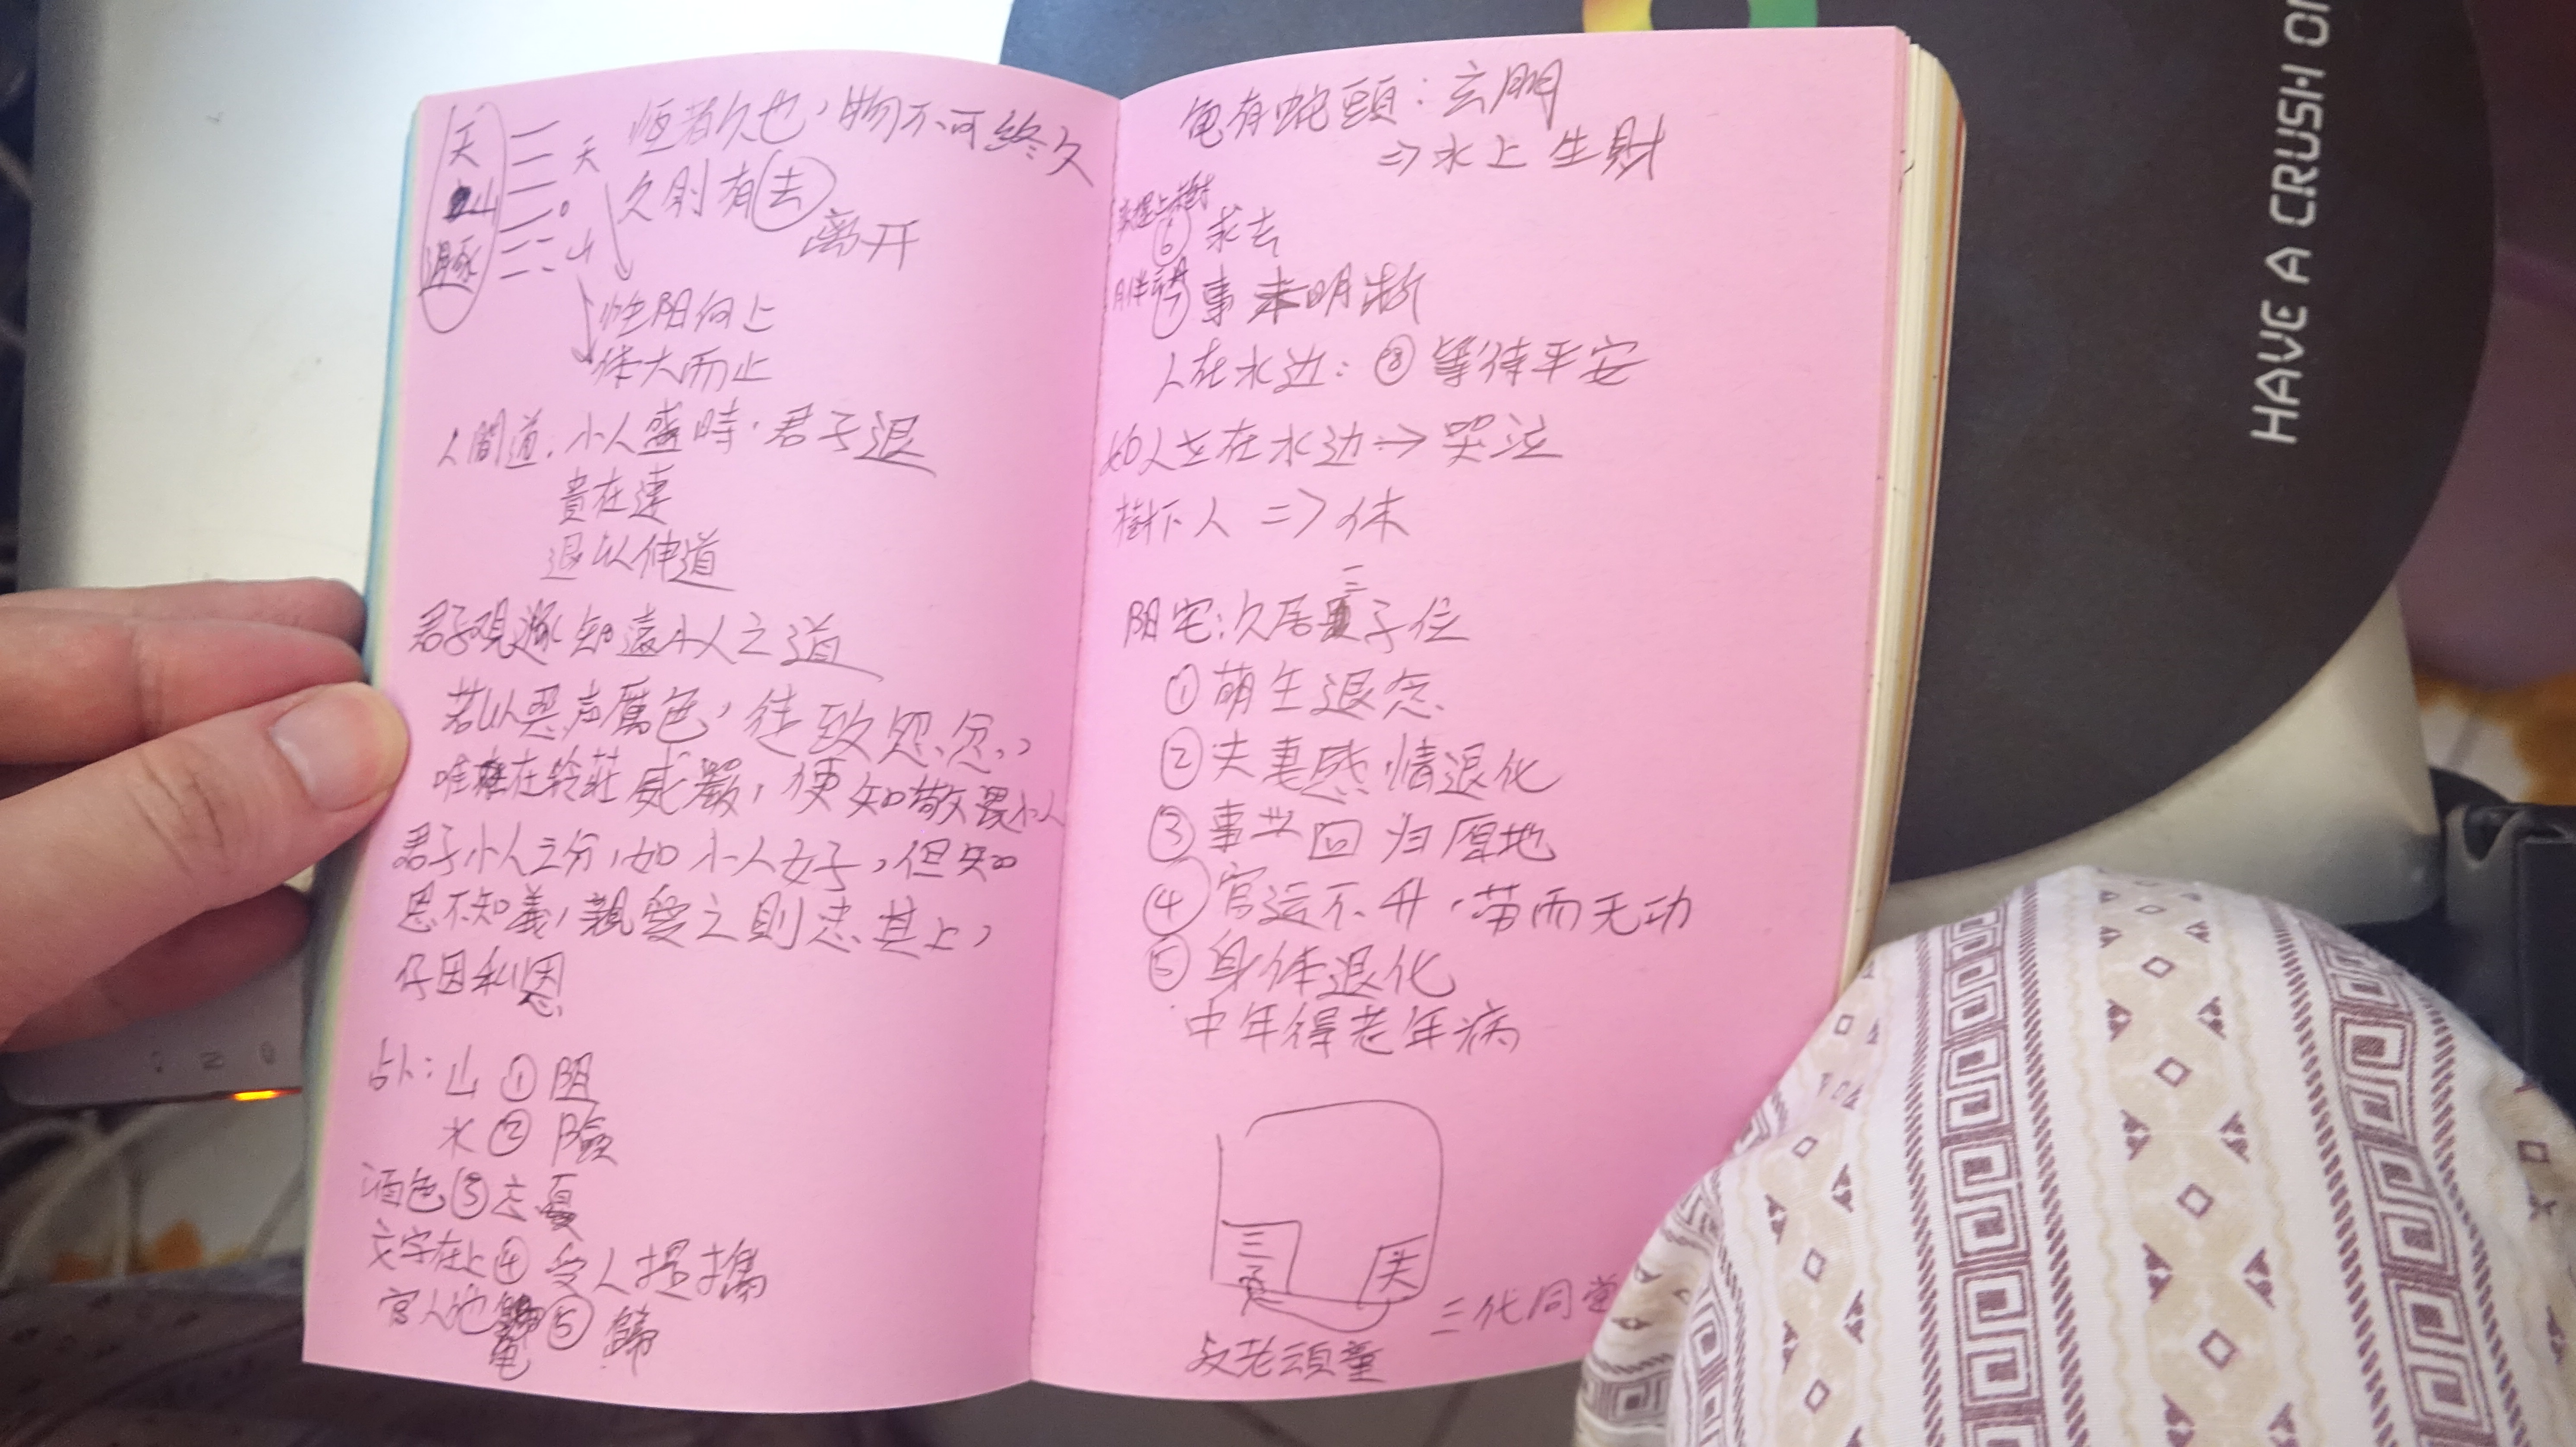 天山遯
天
山
恒者久也，物不可終久
久則有去
离开
性阳向上
体大而止
人間道：小人盛時，君子退
貴在速
退以伸道
君子观遯 知遠小人之道
若以恶声厲色，往致怨忿，
唯在矜莊威嚴，便知敬畏小人
君子小人之分，如小人女子，但知
恩不知義，親愛之則忠其上，
仔因私恩
占卜：山 ① 阻
水 ② 險
酒色 ③ 忘憂
文字在上 ④ 受人提携
官人 龟 ⑤ 歸
龟有蛇頭：玄門
⇒ 水上生財
⑥ 求去
⑦ 事未明晰
人在水边：⑧ 等待平安
如人立在水边 → 哭泣
樹下人 ⇒ 休
阳宅：久居三子位
① 萌生退念
② 夫妻感情退化
③ 事业回归原地
④ 官运不升，带而无功
⑤ 身体退化
中年得老年病
三子
天
三代同堂
反老頭童
HAVE A CRUSH ON